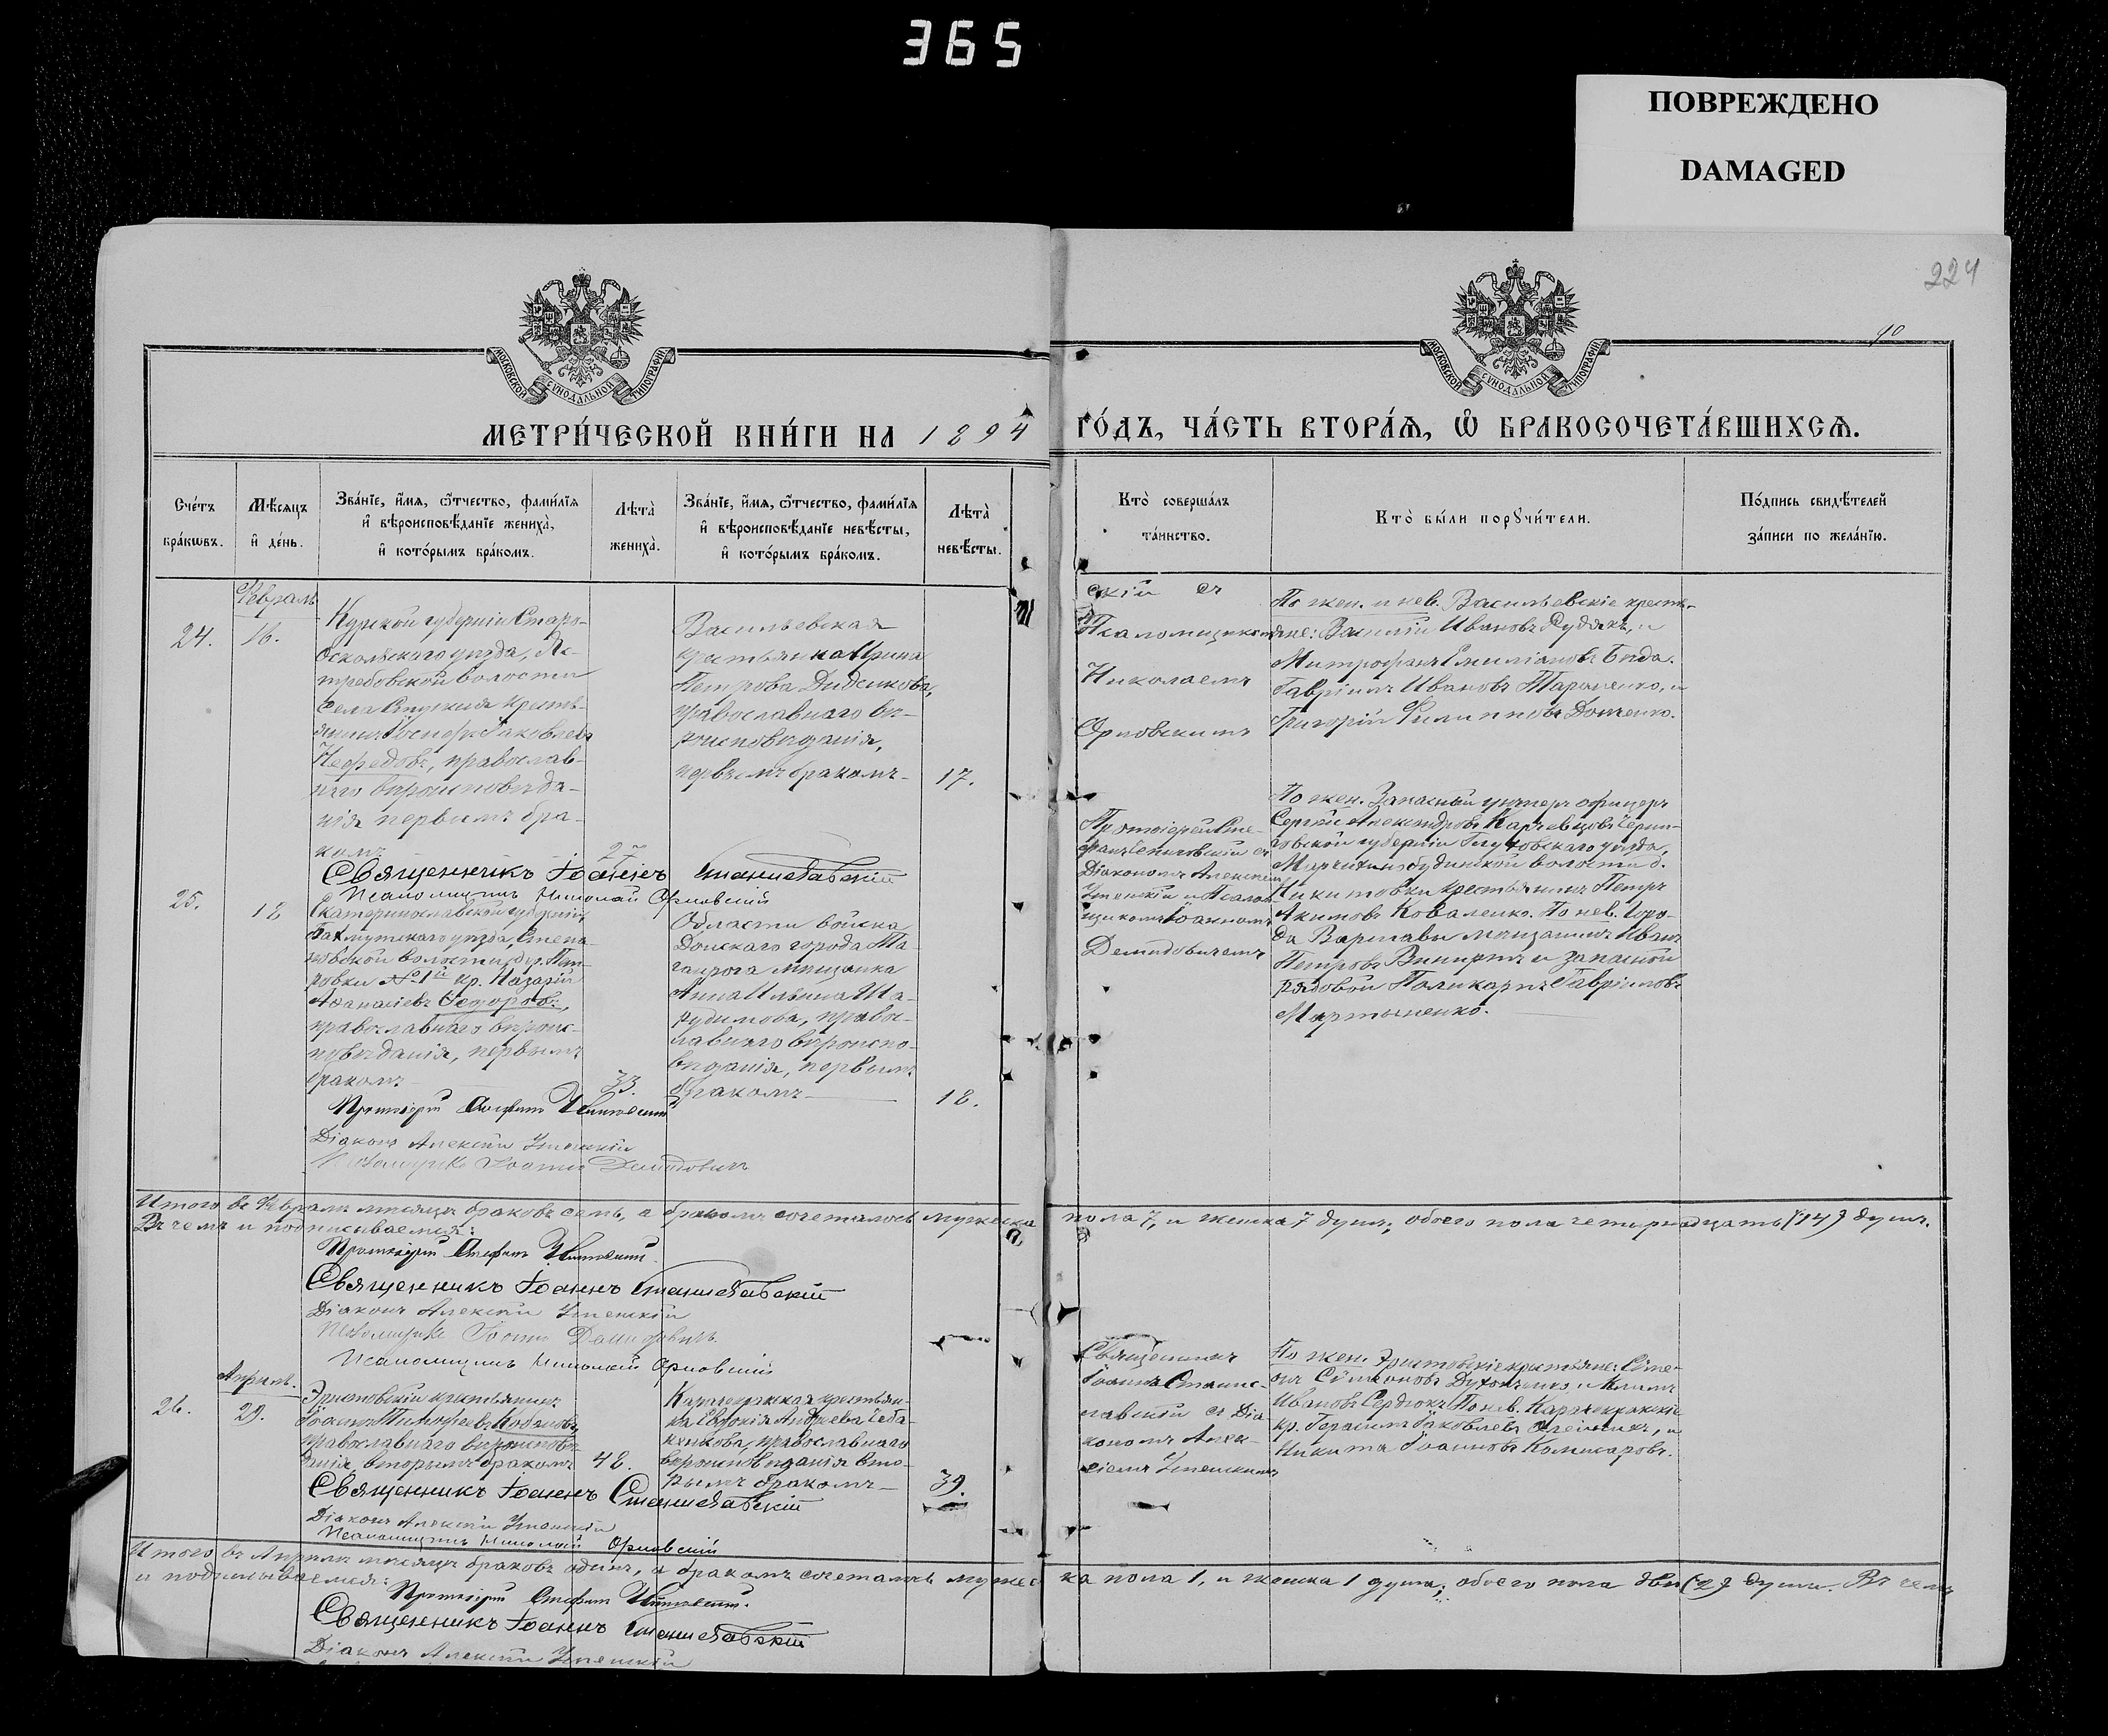 365
ПОВРЕЖДЕНО
DAMAGED
224
90
МОСКОВСКОЙ СѴНОДАЛЬНОЙ ТИПОГРАФІИ
МОСКОВСКОЙ СѴНОДАЛЬНОЙ ТИПОГРАФІИ
МЕТРИ́ЧЕСКОЙ КНИ́ГИ НА 1894
ГО́ДЪ, ЧА́СТЬ ВТОРА́Ѧ, Ѽ БРАКОСОЧЕТА́ВШИХСѦ.
Сче́тъ бра́кѡвъ.
Мѣ́сяцъ и҆ де́нь.
Зва́нїе, и҆́мѧ, ѻ҆́тчество, фами́лїѧ
и҆ вѣроисповѣ́данїе жениха̀,
и҆ кото́рымъ бра́комъ.
Лѣта̀ жениха̀.
Зва́нїе, и҆́мѧ, ѻ҆́тчество, фами́лїѧ
и҆ вѣроисповѣ́данїе невѣ́сты,
и҆ кото́рымъ бра́комъ.
Лѣта̀ невѣ́сты.
Кто̀ соверша́лъ
та́инство.
Кто̀ бы́ли порꙋчи́тели.
По́дпись свидѣ́телей
за́писи по жела́нїю.
24.
Февраль
16.
Курской губерніи Старо-
оскольскаго уѣзда, Яс-
требовской волости
села кресть-
янинъ Іосифъ Іаковлевъ
Нефедовъ, православ-
наго вѣроисповѣда-
нія первымъ бра-
комъ
27
Васильевская
крестьянка Ирина
Петрова Диденкова,
православнаго вѣ-
роисповѣданія,
первымъ бракомъ-
17.
скій съ
Псаломщикомъ
Николаемъ
Орловскимъ
По жен. и нев. Васильевскіе кресть-
яне: Василій Ивановъ Рудякъ, и
Митрофанъ Емиліановъ Бѣда.
Гавріилъ Ивановъ и
Григорій Филипповъ Донченко.
Священникъ Іоаннъ Станиславскій
Псаломщикъ Николай Орловскій
25.
18
Екатеринославской губерніи
Бахмутскаго уѣзда, Степа-
новской волости, дер.
№ 1й кр. Назарій
Аѳанасіевъ Ѳедоровъ,
православнаго вѣроис-
повѣданія, первымъ
бракомъ
33.
Области войска
Донскаго города Та-
ганрога мѣщанка
Анна Ильина Ша-
рудимова, правос-
лавнаго вѣроиспо-
вѣданія, первымъ
бракомъ
18.
Протоіерей Сте-
фанъ съ
Діакономъ Алексіемъ
Успенскій и Псалом-
щикомъ Іоанномъ
Демидовичемъ
По жен. Запасный унтеръ офицеръ
Сергѣй Александровъ Карпевцовъ Черни-
говской губерніи Глуховскаго уѣзда,
волости д.
Никитовки крестьянинъ Петръ
Акимовъ Коваленко. По нев. Горо-
да Варшавы мѣщанинъ Иванъ
Петровъ и запасной
рядовой Поликарпъ Гавріиловъ
Мартыненко.
Протоіерей Стефанъ
Діаконъ Алексій Успенскій
Псаломщикъ Іоаннъ Демидовичъ
Итого въ Февралѣ мѣсяцѣ браковъ семь, а бракомъ сочеталось мужеска пола 7, и женска 7 душъ; обоего пола четырнадцать (14) душъ.
Въ чемъ и подписываемся:
Протоіерей Стефанъ
Священникъ Іоаннъ Станиславскій
Діаконъ Алексій Успенскій
Псаломщикъ Іоаннъ Демидовичъ
Псаломщикъ Николай Орловскій
26.
Апрѣль.
29.
Эристовскій крестьянинъ
Іоаннъ Тимофеевъ
православнаго вѣроисповѣда-
нія, вторымъ бракомъ
48.
Каракокракская крестьян-
ка Евдокія Андреева Саба-
кенкова, православнаго
вѣроисповѣданія вто-
рымъ бракомъ-
39.
Священникъ
Іоаннъ Станис-
лавскій съ Діа-
кономъ Алек-
сіемъ Успенскимъ
По жен. Эристовскіе крестьяне: Симе-
онъ Симеоновъ и Климъ
Ивановъ Сердюкъ. По нев.
кр. Герасимъ Іаковлевъ Олейникъ, и
Никита Іоанновъ Комисаровъ.
Священникъ Іоаннъ Станиславскій
Діаконъ Алексій Успенскій
Псаломщикъ Николай Орловскій
Итого въ Апрѣлѣ мѣсяцѣ браковъ одинъ, а бракомъ сочеталось мужес ка пола 1, и женска 1 душа; обоего пола двѣ (2) души. Въ чемъ
и подписываемся:
Протоіерей Стефанъ
Священникъ Іоаннъ Станиславскій
Діаконъ Алексій Успенскій